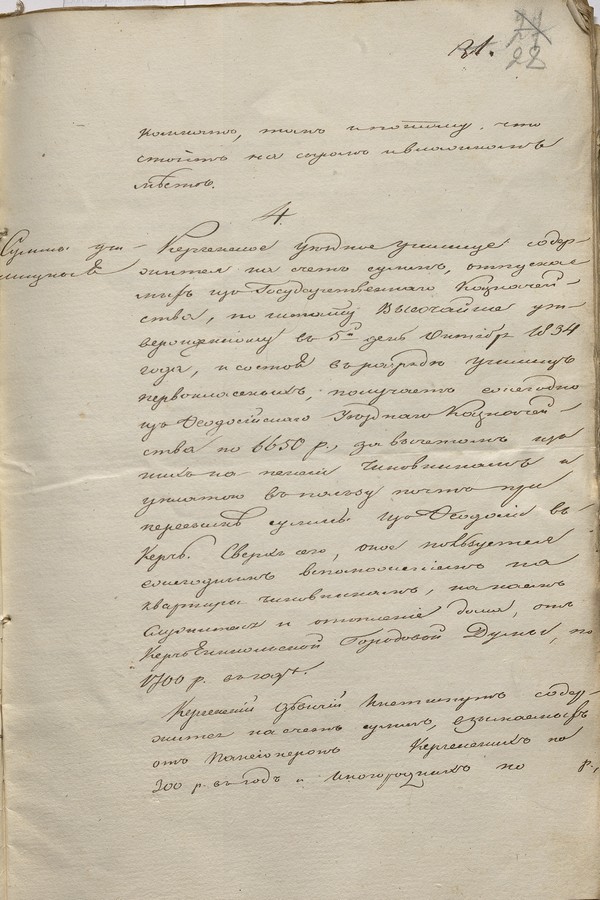 31.
28
комнатъ, такъ и потому, что
стоитъ на сыромъ и
мѣстѣ.
4.
Суммы учи-
лищныя
Керченское уѣздное училище содер-
жится на счетъ суммъ, отпускае-
мыхъ изъ Государственнаго Казначей-
ства, по штату Высочайше ут-
вержденному въ 5й день Октября 1834
года, и состоя въ разрядѣ училищъ
первоклассныхъ, получаетъ ежегодно
изъ Ѳеодосійскаго Уѣзднаго Казначей-
ства по 6650 р., за вычетомъ изъ
нихъ на пенсіи Чиновникамъ и
уплатою въ пользу почты при
пересылкѣ суммы изъ Ѳеодосіи въ
Керчь. Сверхъ сего, оное пользуется
ежегоднымъ вспоможеніемъ на
квартиры чиновникамъ, на наемъ
служителей и отопленіе дома, отъ
Керчь Еникольской Городовой Думы, по
1700 р. въ годъ.
Керченскій Дѣвичій Институтъ содер-
жится на счетъ суммъ, взымаемыхъ
отъ Пансіонерокъ Керченскихъ по
300 р. въ годъ и Иногородныхъ по р.,